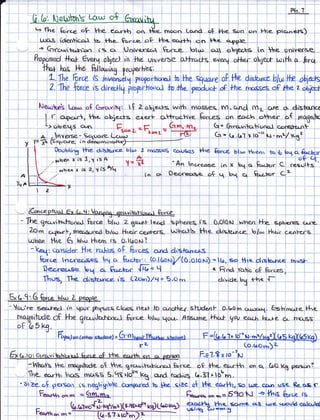 PG. 7
6.6: Newton's Law of Gravity
↳ The force of the earth on the moon (and of the sun on the planets)
was identical to the force of the earth on the apple
→ Gravitation is a Universal Force b/w all objects in the universe
Proposed that Every object in the universe attracts every other object with a force
that has the following properties:
1. The force is inversely proportional to the square of the distance b/w the objects
2. The force is directly proportional to the product of the masses of the 2 objects
Newton's Law of Gravity: If 2 objects with masses m₁ and m₂ are a distance
r apart, the objects exert attractive forces on each other of magnitude
↳ obeys an
Inverse-Square Law
F 1 on 2 = F 2 on 1 = Gm₁m₂/r²
G = Gravitational constant
G = 6.67x10⁻¹¹ N·m²/kg²
(Square, in denominator)
Doubling the distance b/w 2 masses causes the force b/w them to ↓ by a factor
of 4
when x is 1, y is A
when x is 2, y is A/4
y = A/x²
-An Increase in x by a factor C results
in a Decrease of y by a factor C²
Conceptual Ex 6.4: Varying gravitational force
- The gravitational force b/w 2 giant lead spheres is 0.010N when the spheres are
20m apart, measured b/w their centers. What's the distance b/w their centers
when the G b/w them is 0.160N?
-Key: consider the ratios of forces and distances
force Increases by a factor: (0.160N)/(0.010N)=16, so the distance must
Decrease by a factor √16=4
Thus, The distance is (20m)/4=5.0m
* Find Ratio of Forces,
divide by the √
Ex 6.9: G force b/w 2 people
-You're seated in your physics class next to another student 0.60m away. Estimate the
magnitude of the gravitational force b/w you. Assume that you each have a mass
of 65kg.
r²
F = (6.67x10⁻¹¹N·m²/kg²)(65kg)(65kg)
(0.60m)²
F=7.8x10⁻⁷N
Ex 6.10: Gravitational force of the earth on a person
-What's the magnitude of the gravitational force of the earth on a 60 kg person?
The earth has mass 5.98x10²⁴ kg and radius 6.37x10⁶m.
-Size of person is negligible compared to the size of the earth, so we can use Re as r
F earth on m = GMeme
r²
F earth on m = (6.67x10⁻¹¹N·m²/kg²)(5.98x10²⁴kg)(60kg)
(6.37x10⁶m)²
F earth on m = 590N → this force is
exactly the same as we would calculate
using